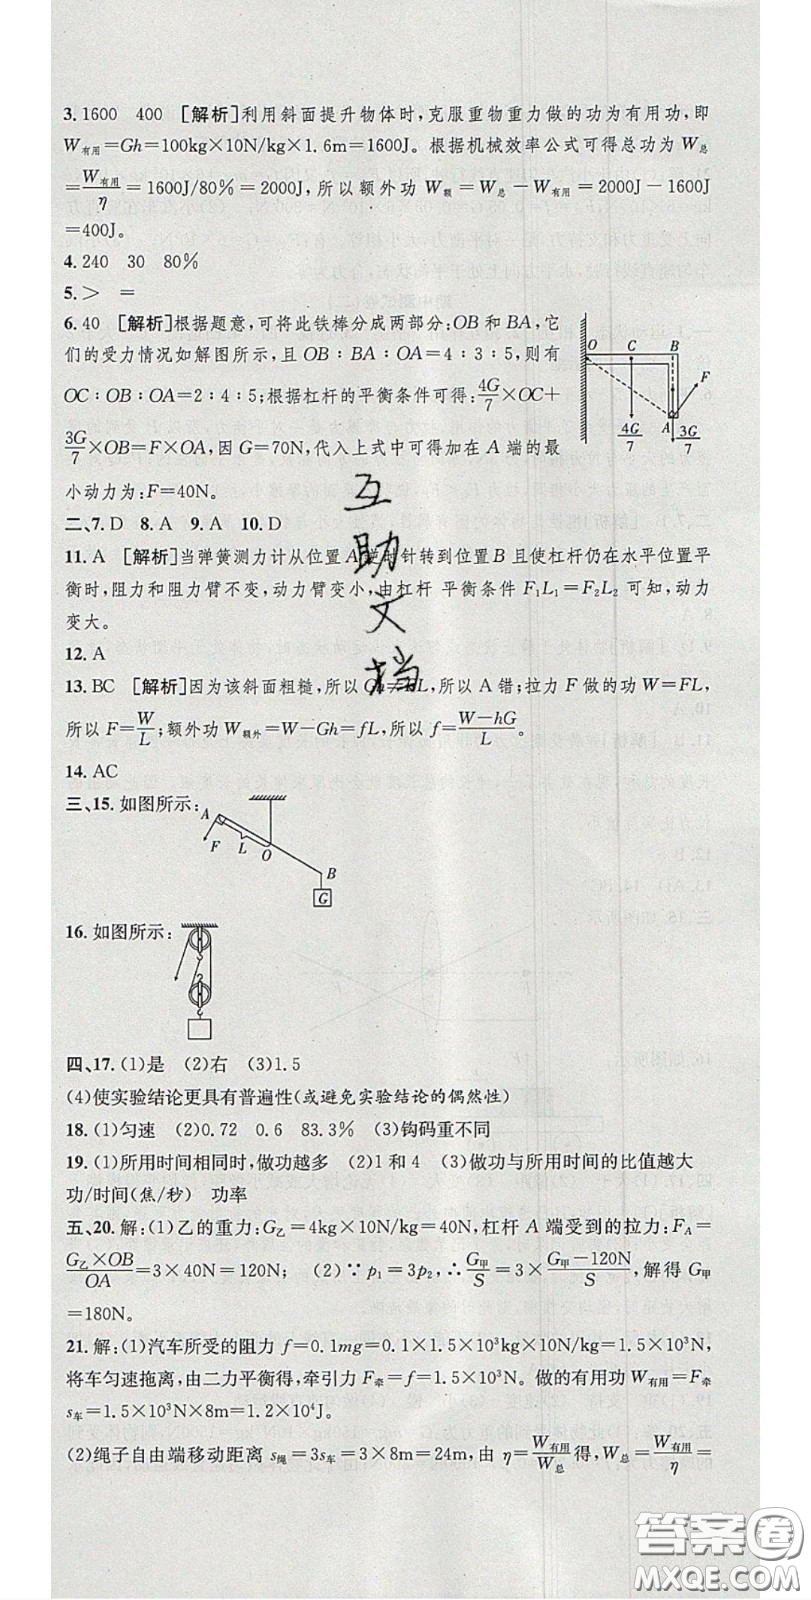 3.1600　400　[解析]利用斜面提升物体时,克服重物重力做的功为有用功,即
W有用=Gh=100kg×10N/kg×1.6m=1600J。根据机械效率公式可得总功为W总
=W有用/η=1600J/80%=2000J,所以额外功 W额=W总-W有用=2000J-1600J
=400J。
4.240　30　80%
5.>　=
6.40　[解析]根据题意,可将此铁棒分成两部分:OB和BA,它
们的受力情况如解图所示,且OB∶BA∶OA=4∶3∶5,则有
OC∶OB∶OA=2∶4∶5;根据杠杆的平衡条件可得:4G/7×OC+
3G/7×OB=F×OA,因G=70N,代入上式中可得加在A端的最
小动力为:F=40N。
O C B
F
A
4G/7 3G/7
二、7.D　8.A　9.A　10.D
11.A　[解析]当弹簧测力计从位置A逆时针转到位置B且使杠杆仍在水平位置平
衡时,阻力和阻力臂不变,动力臂变小,由杠杆 平衡条件F1L1=F2L2 可知,动力
变大。
12.A
13.BC　[解析]因为该斜面粗糙,所以Gh≠FL,所以A错;拉力F做的功W=FL,
所以F=W/L;额外功W额外=W-Gh=fL,所以f=(W-hG)/L。
14.AC
三、15.如图所示:
A F L O B G
16.如图所示:
四、17.(1)是　(2)右　(3)1.5
(4)使实验结论更具有普遍性(或避免实验结论的偶然性)
18.(1)匀速　(2)0.72　0.6　83.3%　(3)钩码重不同
19.(1)所用时间相同时,做功越多　(2)1和4　(3)做功与所用时间的比值越大
功/时间(焦/秒)　功率
五、20.解:(1)乙的重力:G乙=4kg×10N/kg=40N,杠杆A端受到的拉力:FA=
G乙×OB/OA=3×40N=120N;　(2)∵p1=3p2,∴G甲/S=3×(G甲-120N)/S,解得G甲
=180N。
21.解:(1)汽车所受的阻力f=0.1mg=0.1×1.5×10³kg×10N/kg=1.5×10³N,
将车匀速拖离,由二力平衡得,牵引力F牵=f=1.5×10³N。做的有用功W有用=F牵
s车=1.5×10³N×8m=1.2×10⁴J。
(2)绳子自由端移动距离s绳=3s车=3×8m=24m,由η=W有用/W总得,W总=W有用/η=
互助文档
答案圈
MXQE.COM